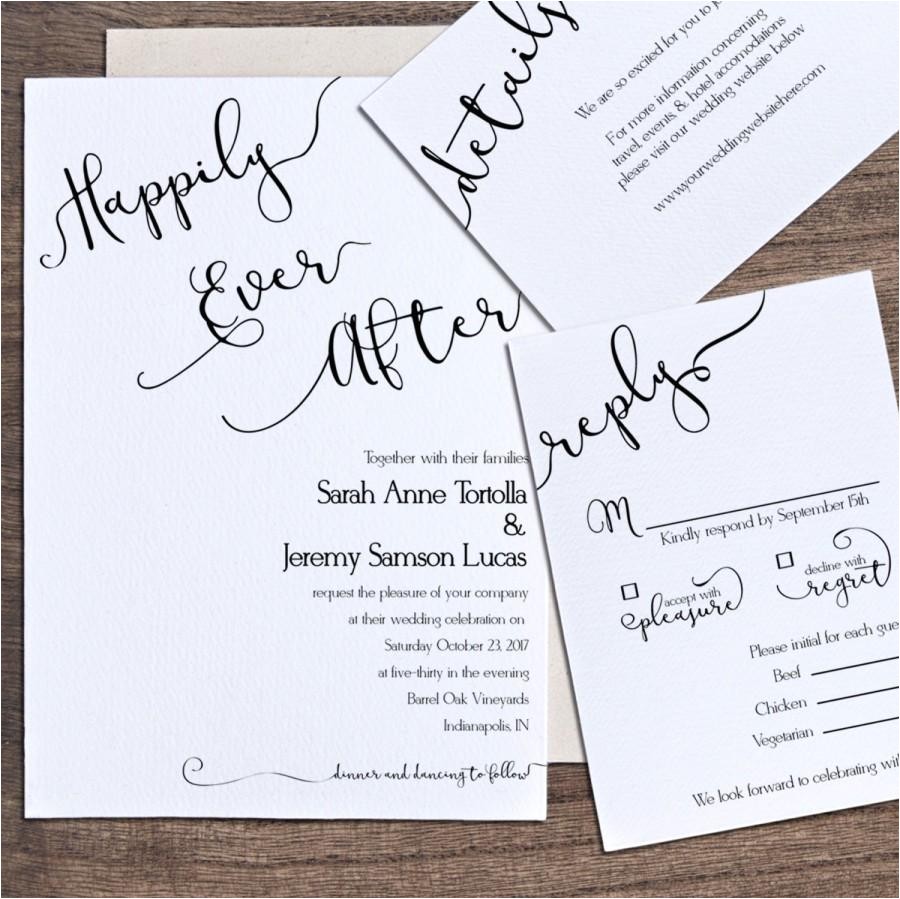 Happily
Ever
After
Together with their families
Sarah Anne Tortolla
&
Jeremy Samson Lucas
request the pleasure of your company
at their wedding celebration on
Saturday October 23, 2017
at five-thirty in the evening
Barrel Oak Vineyards
Indianapolis, IN
dinner and dancing to follow
details
We are so excited for you to
For more information concerning
travel, events, & hotel accomodations
please visit our wedding website below
www.yourweddingwebsitehere.com
reply
M
Kindly respond by September 15th
accept with
pleasure
decline with
regret
Please initial for each
Beef
Chicken
Vegetarian
We look forward to celebrating